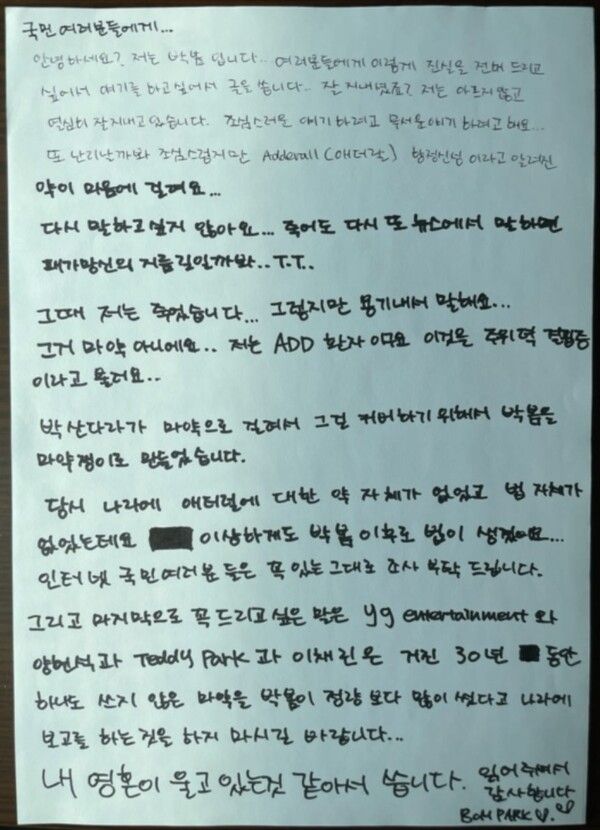 국민 여러분들에게...
안녕하세요? 저는 박봄 입니다.. 여러분들에게 이렇게 진실을 전해 드리고
싶어서 얘기를 하고싶어서 글을 씁니다.. 잘 지내셨죠? 저는 아프지 않고
열심히 잘지내고 있습니다. 조심스러운 얘기 하려고 무서운얘기 하려고 해요...
또 난리날까봐 조심스럽지만 Adderall (애더럴) 향정신성 이라고 알려진
약이 마음에 걸려요...
다시 말하고 싶지 않아요... 죽어도 다시 또 뉴스에서 말하면
패가망신의 지름길일까봐..T.T..
그때 저는 죽었습니다... 그렇지만 용기내서 말해요...
그거 마약 아니에요.. 저는 ADD 환자 이구요 이것을 주위력 결핍증
이라고 불러요..
박산다라가 마약으로 걸려서 그걸 커버하기 위해서 박봄을
마약쟁이로 만들었습니다.
당시 나라에 애터럴에 대한 약 자체가 없었고 법 자체가
없었는데요 이상하게도 박봄 이후로 법이 생겼어요...
인터넷 국민여러분 들은 꼭 있는그대로 조사 부탁 드립니다.
그리고 마지막으로 꼭 드리고 싶은 말은 yg entertainment 와
양현석과 Teddy Park 과 이채린은 거진 30년 동안
하나도 쓰지 않은 마약을 박봄이 정량 보다 많이 썼다고 나라에
보고를 하는것을 하지 마시길 바랍니다...
내 영혼이 울고 있는것 같아서 씁니다. 읽어 주셔서
감사합니다
BOM PARK ♡.♡